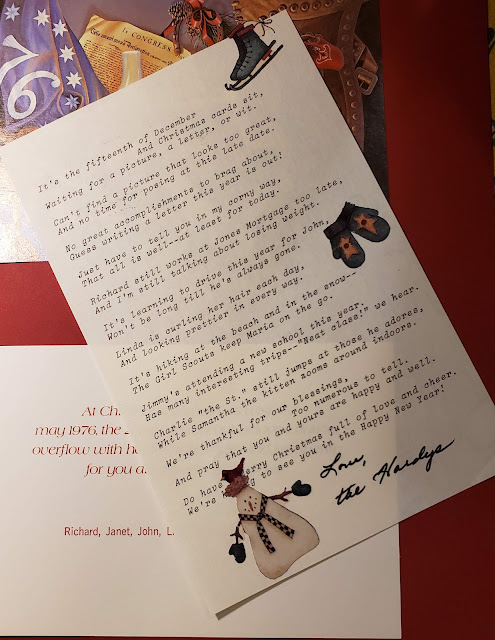 76
CONGRESS
It's the fifteenth of December
And Christmas cards sit,
Waiting for a picture, a letter, or wit.
Can't find a picture that looks too great,
And no time for posing at this late date.
No great accomplishments to brag about,
Guess writing a letter this year is out!
Just have to tell you in my corny way,
That all is well--at least for today.
Richard still works at Jones Mortgage too late,
And I'm still talking about losing weight.
It's learning to drive this year for John,
Won't be long till he's always gone.
Linda is curling her hair each day,
And looking prettier in every way.
It's hiking at the beach and in the snow--
The Girl Scouts keep Maria on the go.
Jimmy's attending a new school this year.
Has many interesting trips--"Neat class!" we hear.
Charlie "the St." still jumps at those he adores,
While Samantha the kitten zooms around indoors.
We're thankful for our blessings,
Too numerous to tell.
And pray that you and yours are happy and well.
Do have Merry Christmas full of love and cheer.
We're to see you in the Happy New Year!
Love,
the Hardys
At Ch
may 1976, the
overflow with
for you a
Richard, Janet, John, L.